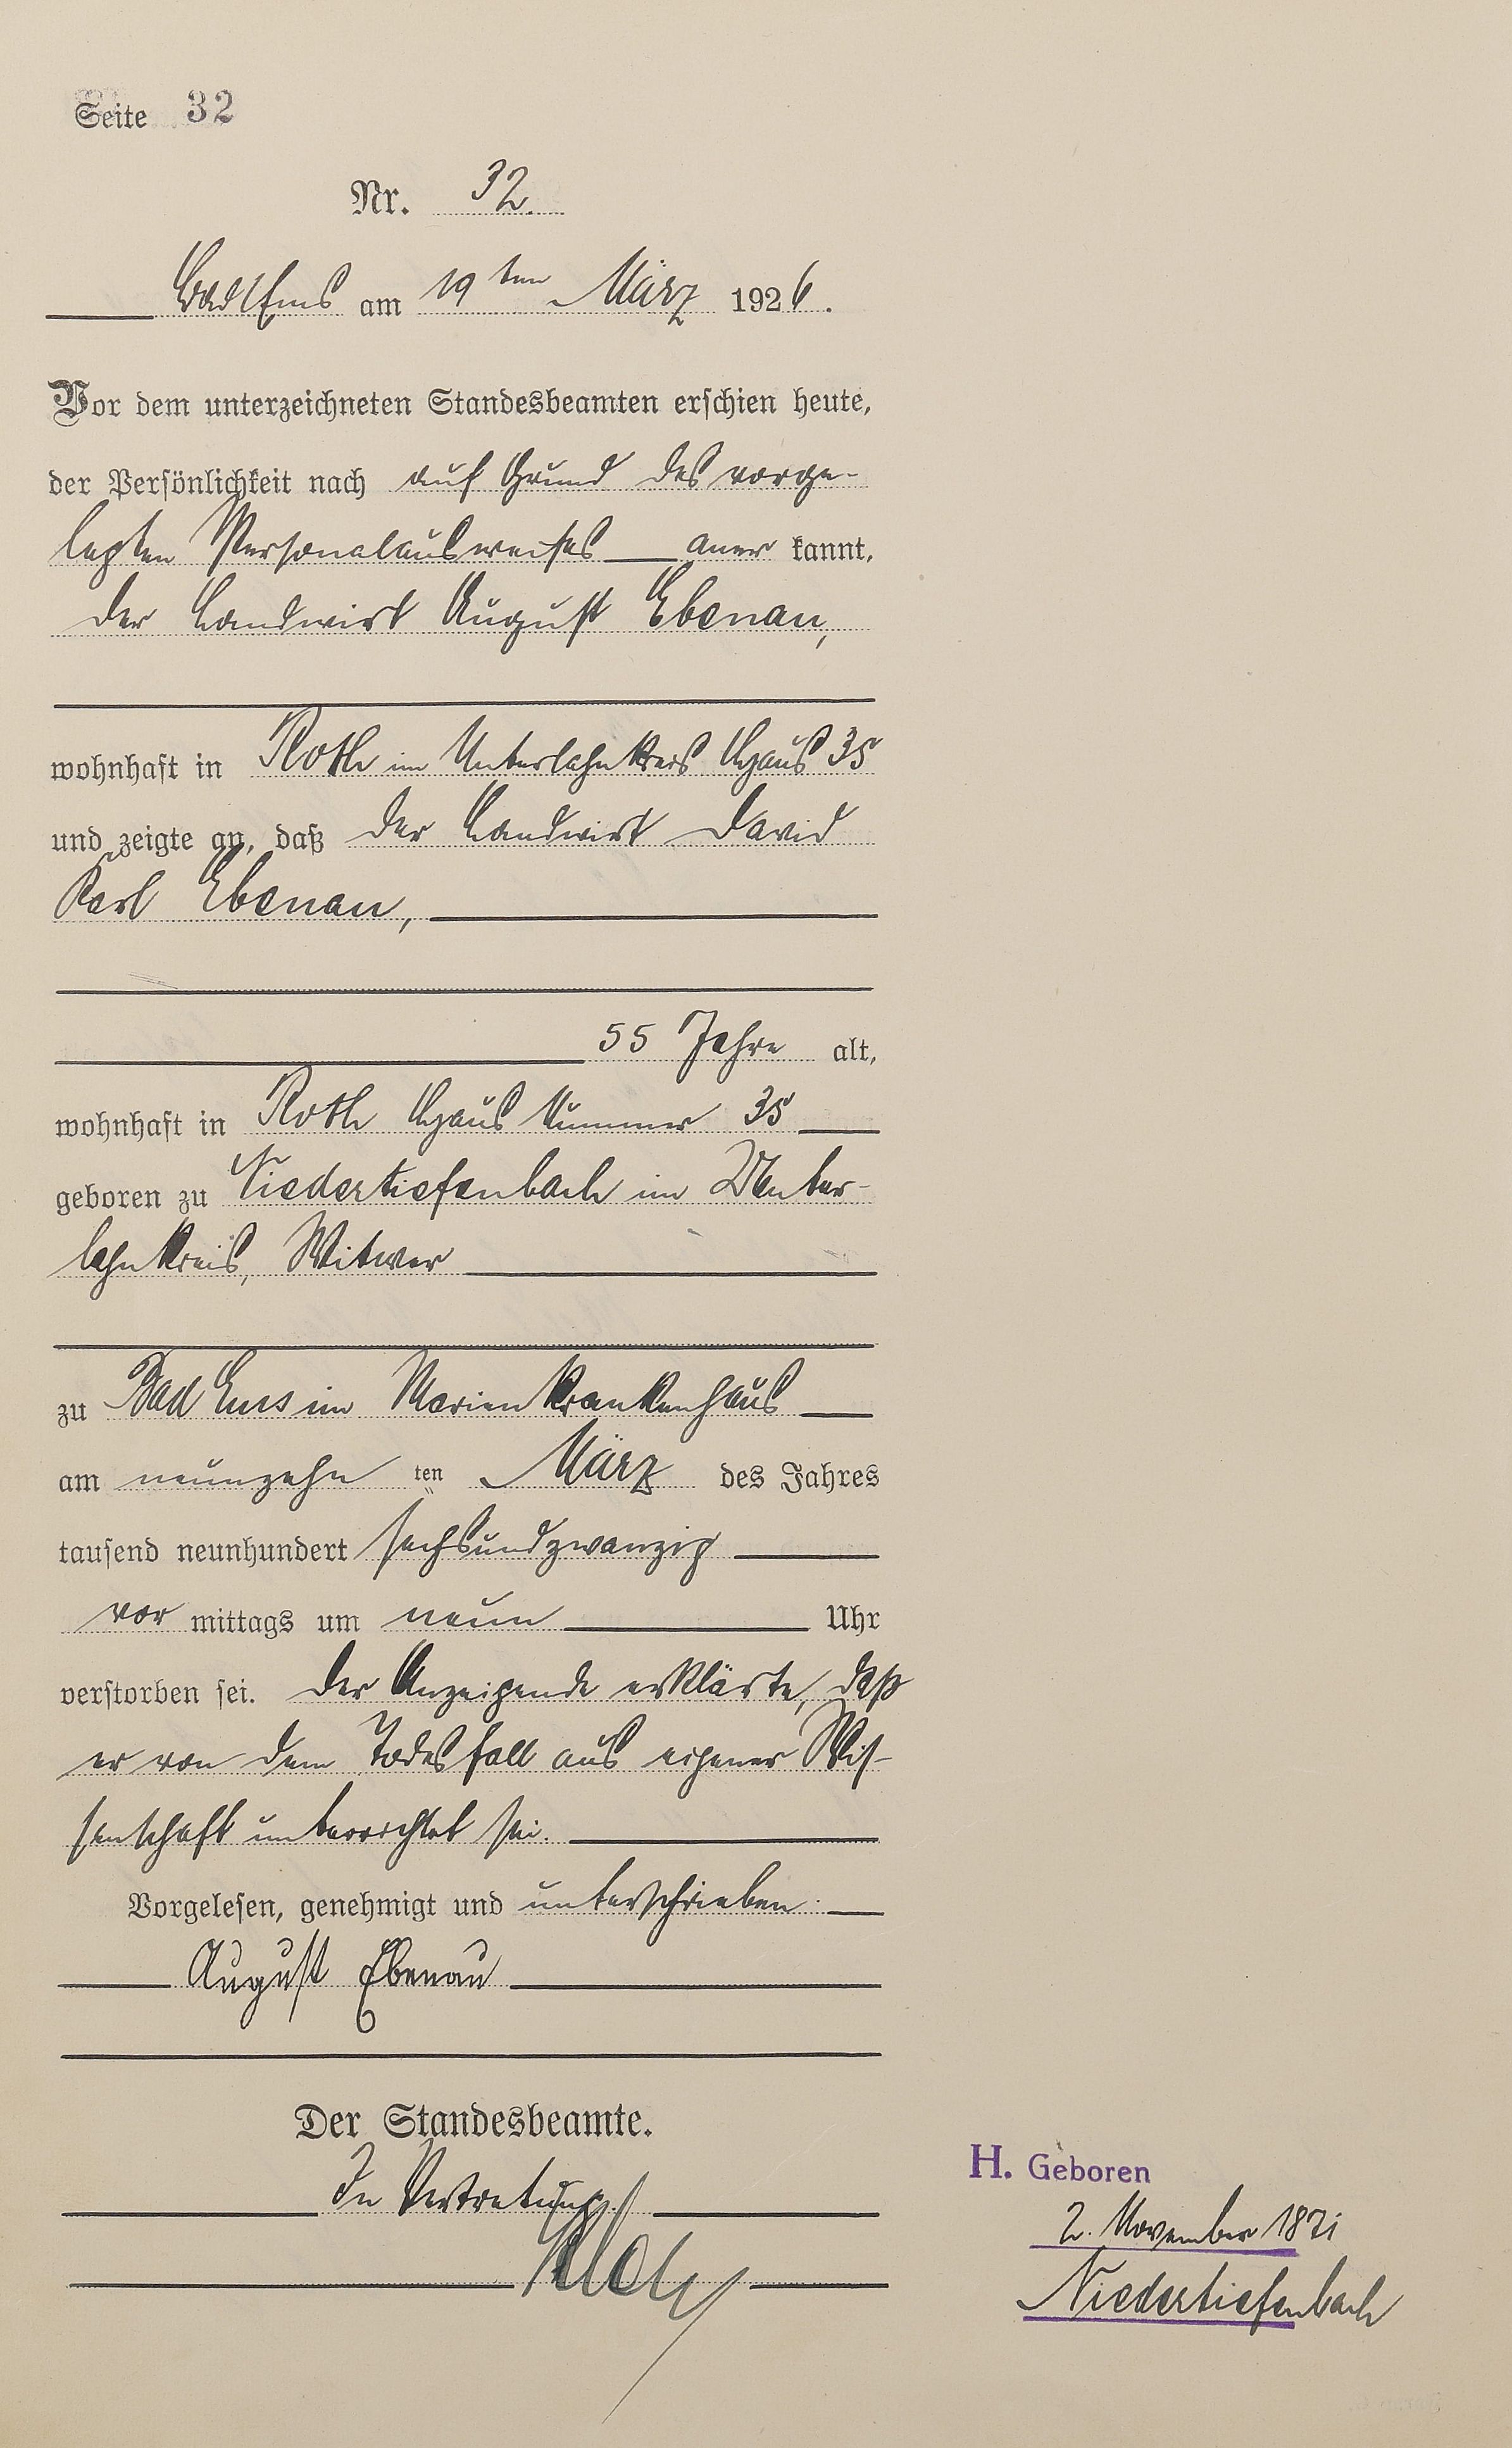 Seite 32
Nr. 32.
Bad Ems am 19ten März 1926.
Vor dem unterzeichneten Standesbeamten erschien heute,
der Persönlichkeit nach auf Grund des vorge-
legten Personalausweises aner kannt,
der Landwirt August Ebenau,
wohnhaft in Roth im Unterlahnkreis Haus 35
und zeigte an, daß der Landwirt David
Karl Ebenau,
55 Jahre alt,
wohnhaft in Roth Haus Nummer 35
geboren zu Niedertiefenbach im Unter-
lahnkreis, Witwer
zu Bad Ems im Marienkrankenhaus
am neunzehn ten März des Jahres
tausend neunhundert sechsundzwanzig
vor mittags um neun Uhr
verstorben sei. Der Anzeigende erklärte, daß
er von dem Todesfall aus eigener Wis-
senschaft unterrichtet sei.
Vorgelesen, genehmigt und unterschrieben.
August Ebenau
Der Standesbeamte.
In Vertretung
H. Geboren
2. November 1871
Niedertiefenbach